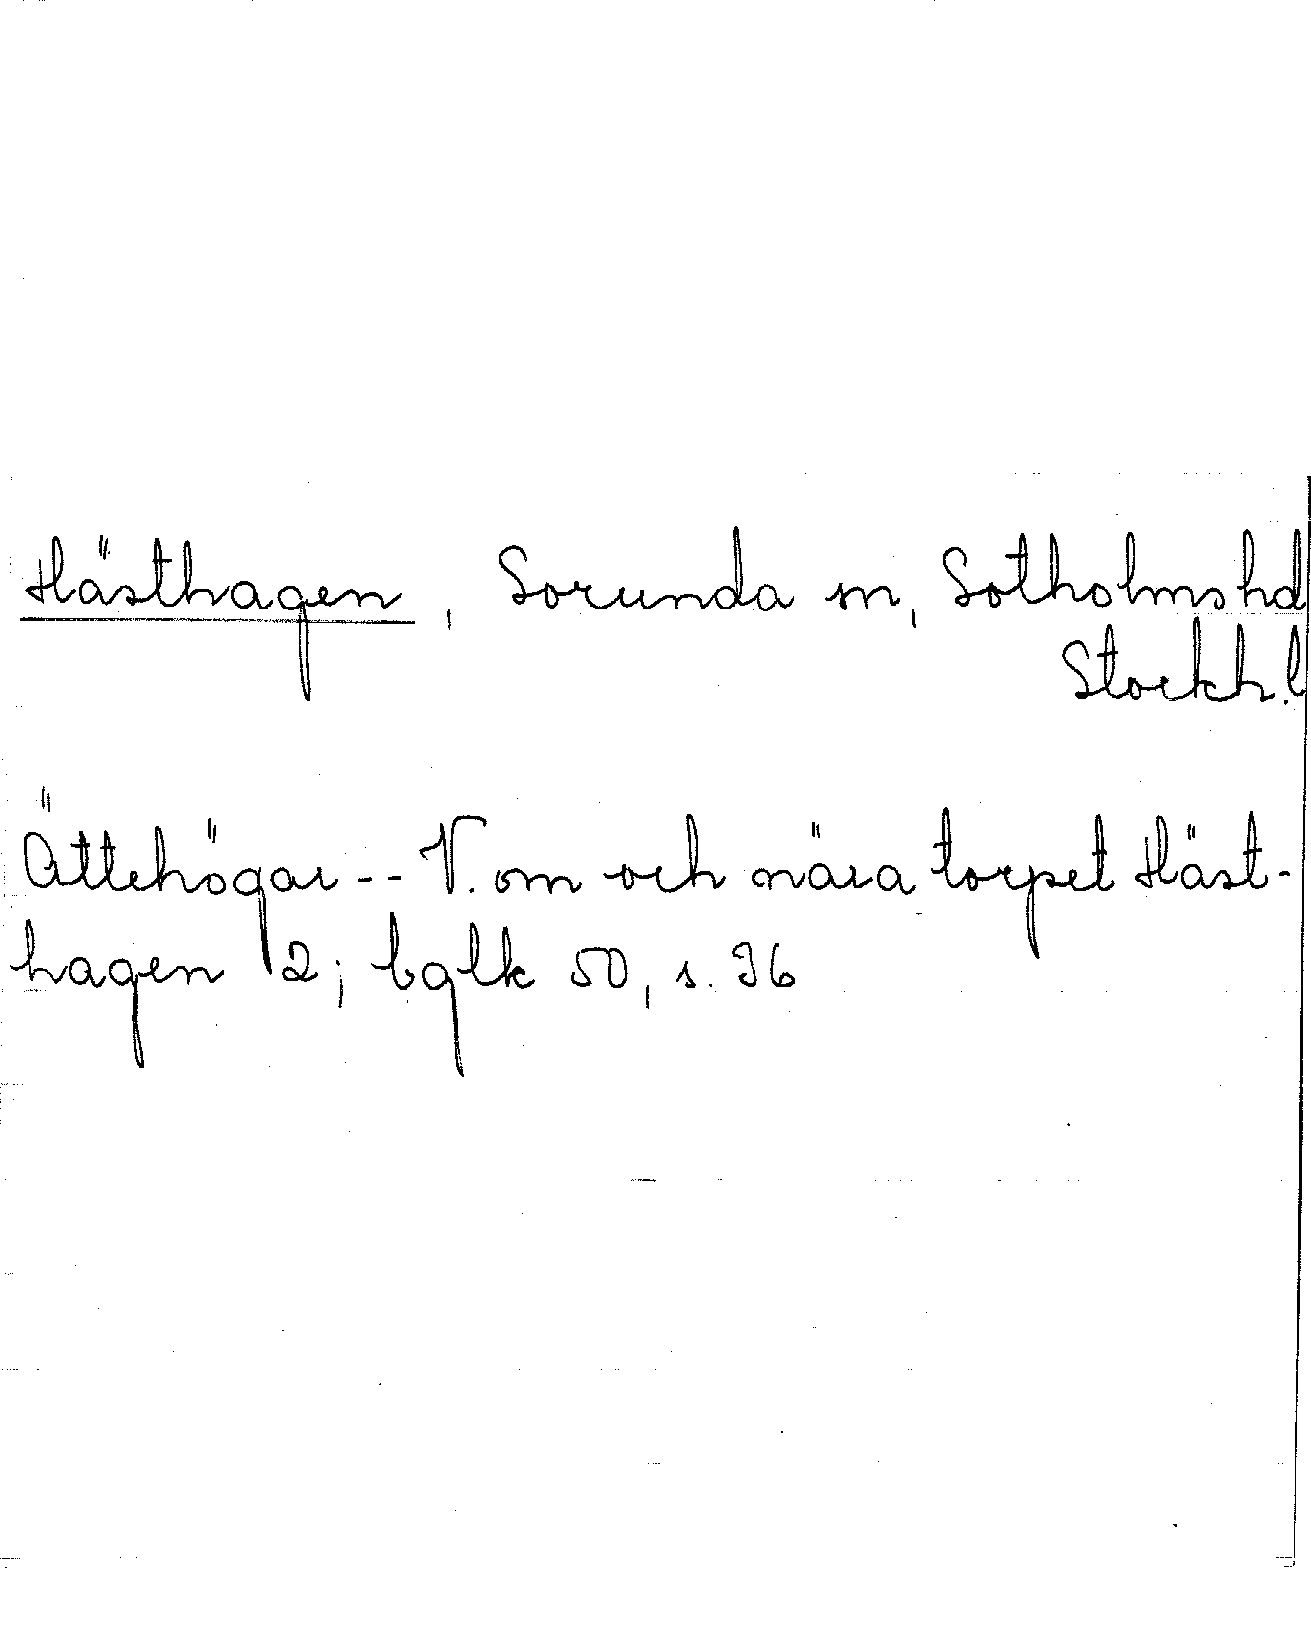 Hästhagen, Sorunda sn, Sotholms hd
Stockh. l
Ättehögar -- V. om och nära torpet Häst-
hagen 2; bglk 50, s. 36